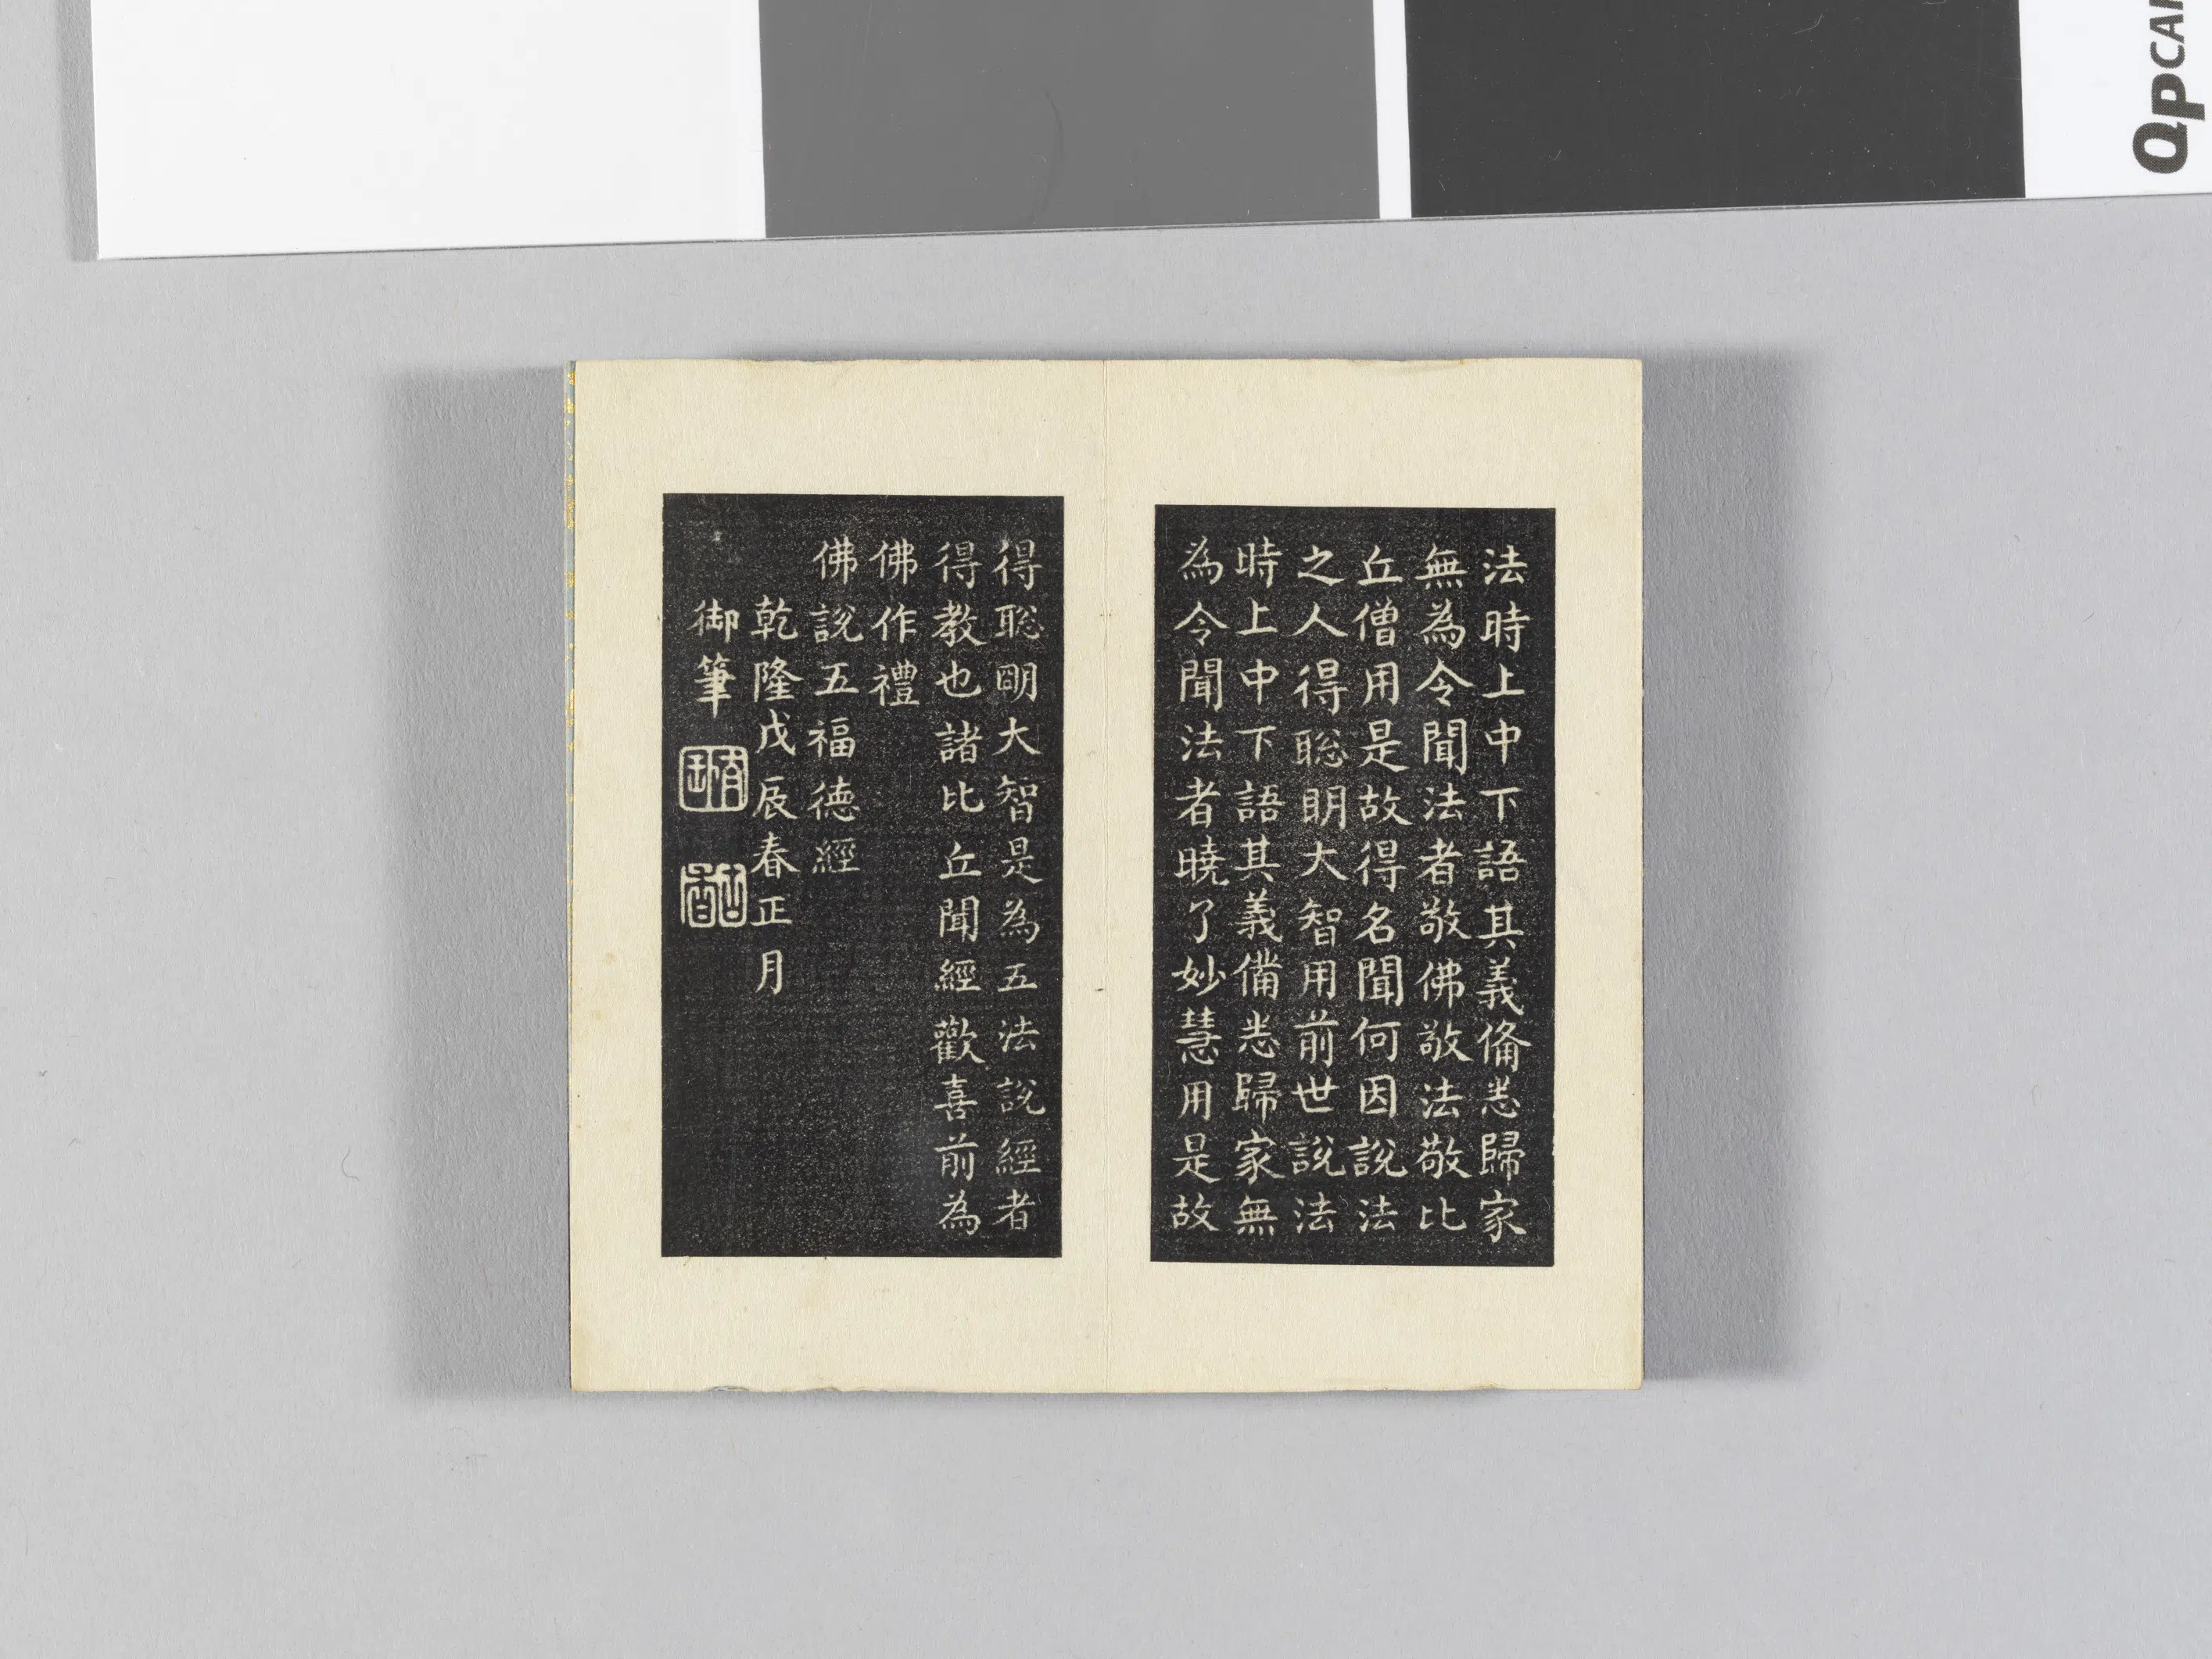 法時上中下語其義俻悉歸家
無為令聞法者敬佛敬法敬比
丘僧用是故得名聞何因說法
之人得聡明大智用前世說法
時上中下語其義備悉歸家無
為令聞法者曉了妙慧用是故
得聡明大智是為五法說經者
得教也諸比丘聞經歡喜前為
佛作禮
佛說五福德經
乾隆戊辰春正月
御筆
QPCAR